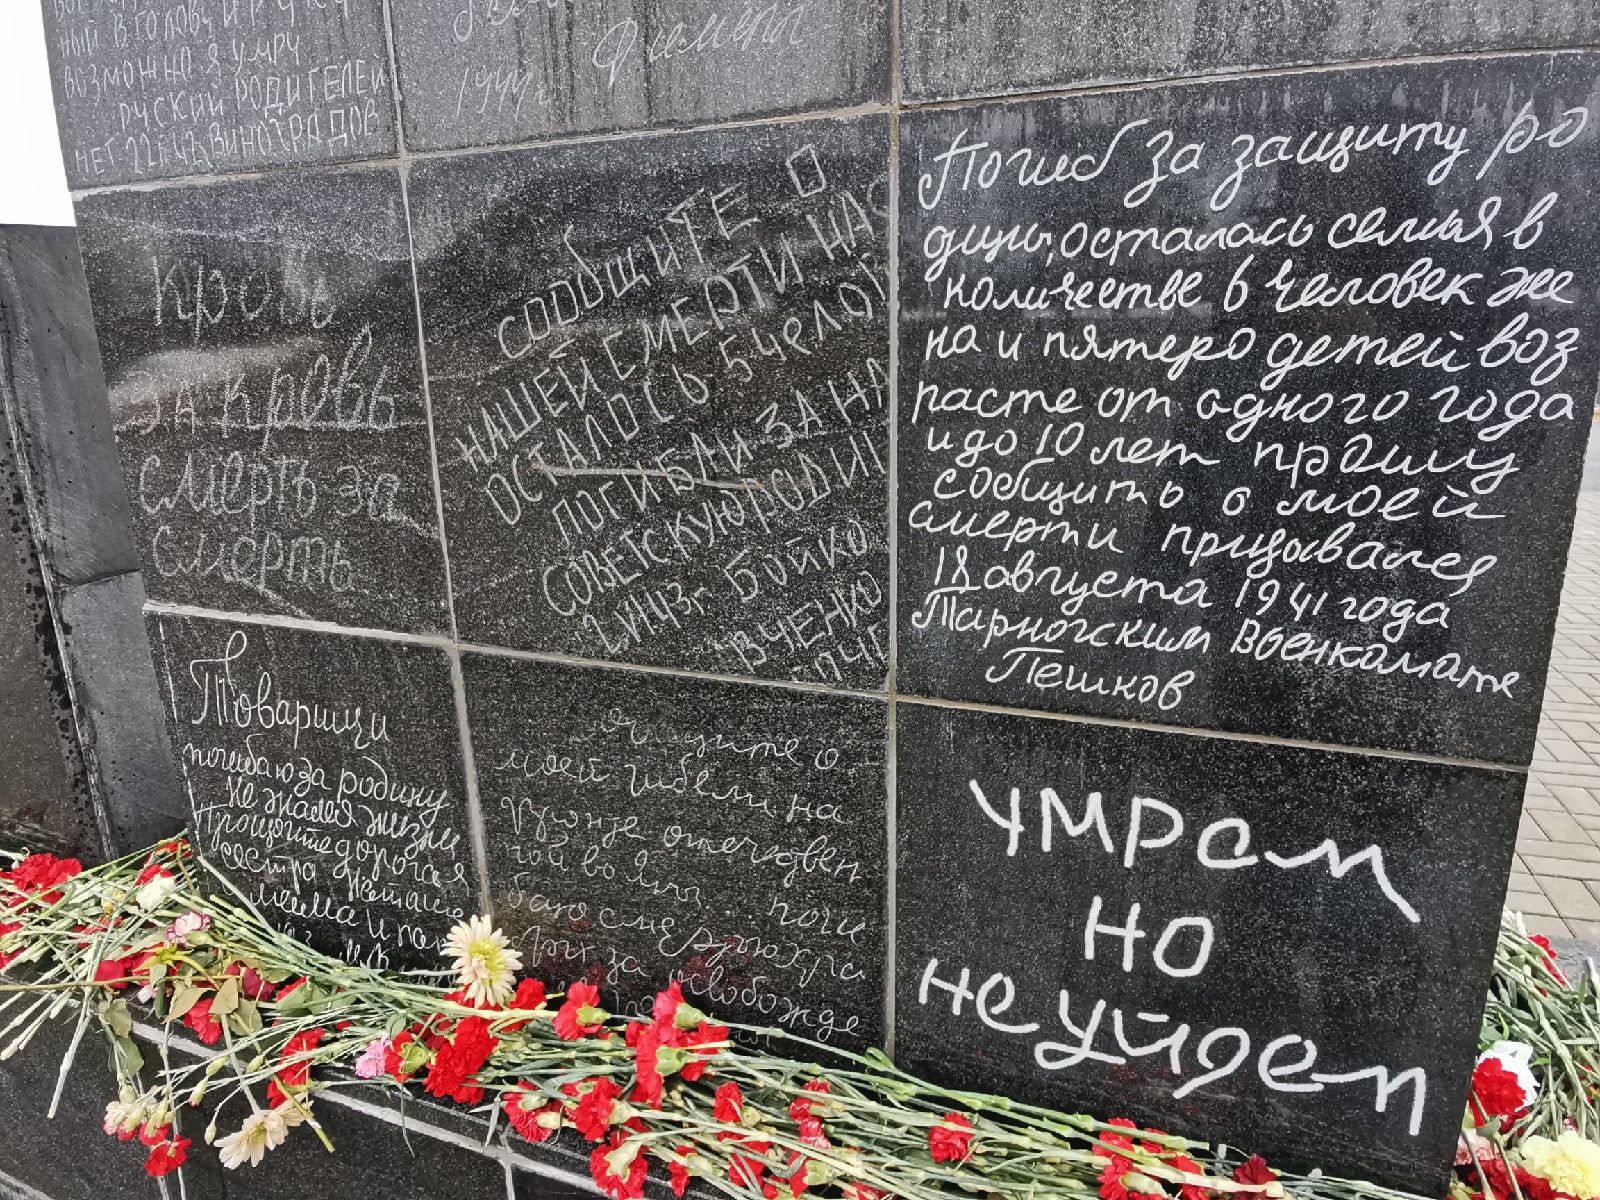 ный в голову и руку
возможно я умру
руский родителей
нет 22 г. Виноградов
1944г.
Кровь
за кровь
смерть за
смерть
СООБЩИТЕ О
НАШЕЙ СМЕРТИ НАС
ОСТАЛОСЬ 5 ЧЕЛОВ
ПОГИБЛИ ЗА НА
СОВЕТСКУЮ РОДИН
Бойко
ВЧЕНКО
Погиб за защиту ро
дины, осталась семья в
количестве 6 человек же
на и пятеро детей воз
расте от одного года
и до 10 лет прошу
сообщить о моей
смерти призывался
18 августа 1941 года
Тарногским Военкомате
Пешков
Товарищи
погибаю за родину
не жалея жизни
Прощайте дорогая
сестра Наташа
мама и пап
моей гибели на
отечествен
ной войны... поги
баю смертью хра
за освобожде
умрем
но
не уйдем